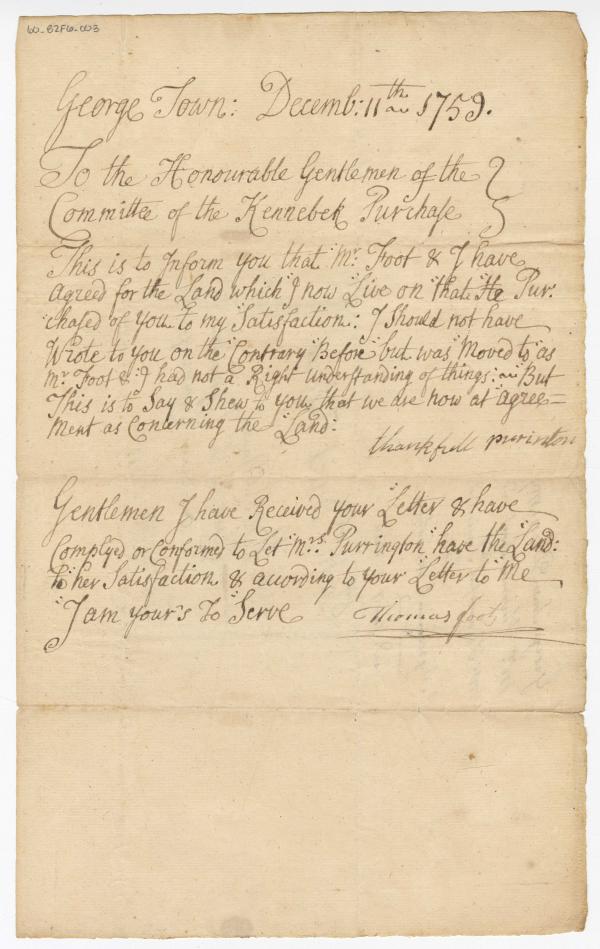 60-82F6-003
George Town: Decemb: 11th 1759.
To the Honourable Gentlemen of the
Committee of the Kennebek Purchase
This is to Inform you that Mr. Foot & I have
Agreed for the Land which I now Live on that He Pur:
chased of You to my Satisfaction: I Should not have
Wrote to you on the Contrary Before but was Moved to as
Mr Foot & I had not a Right understanding of things: But
This is to Say & Shew to you that we are now at Agree=
Ment as Concerning the Land:
thankfull purinton
Gentlemen I have Received your Letter & have
Complyed or Conformed to Let Mrs. Purrington have the Land:
to her Satisfaction & according to your Letter to Me
I am your's To Serve Thomas foot